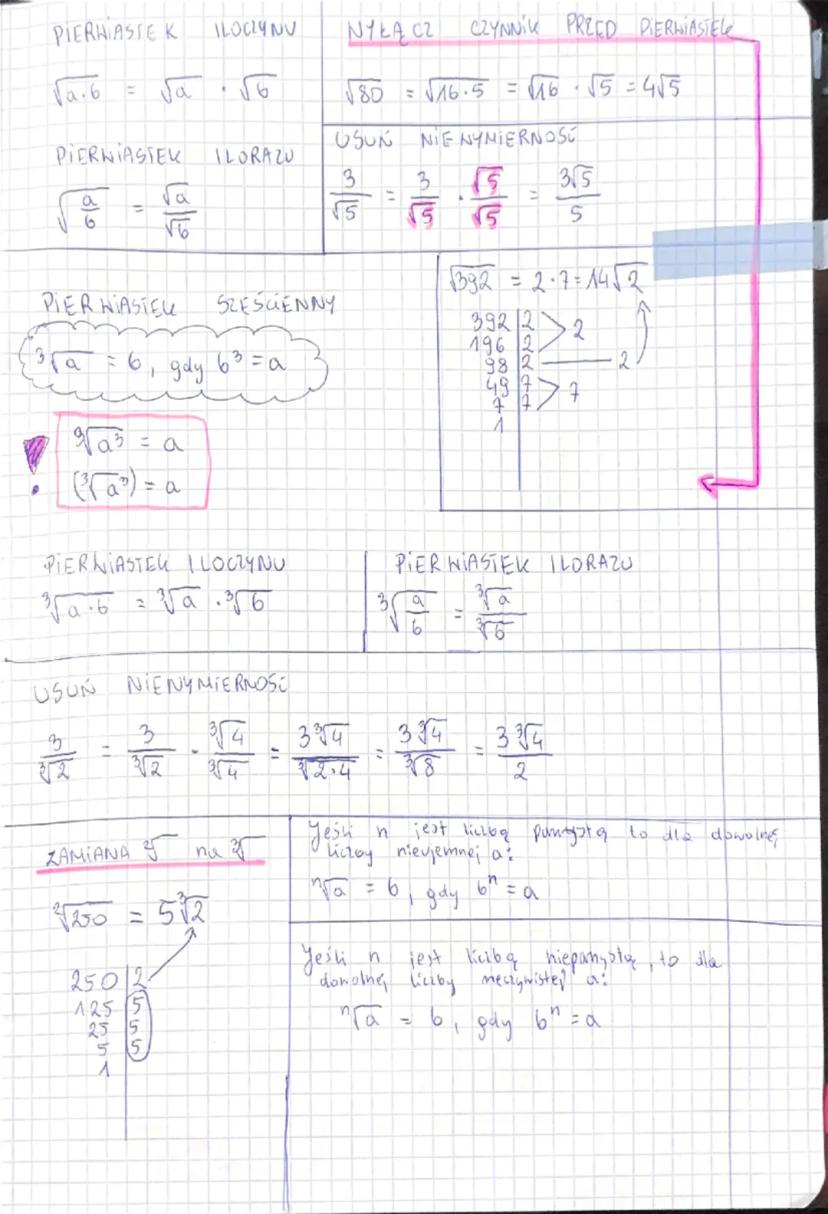 PIERWIASTEK ILOCZYNU
√a·b = √a · √b
PIERWIASTEK ILORAZU
√(a/b) = √a/√b
WYŁĄCZ CZYNNIK PRZED PIERWIASTEK
√80 = √16·5 = √16 · √5 = 4√5
USUŃ NIEWYMIERNOŚĆ
3/√5 = 3/√5 · √5/√5 = 3√5/5
PIERWIASTEK SZEŚCIENNY
³√a = b, gdy b³ = a
³√a³ = a
(³√a³) = a
√392 = 2·7 = 14√2
392 | 2
196 | 2 > 2
98 | 2 — 2
49 | 7
7 | 7 > 7
1
PIERWIASTEK ILOCZYNU
³√a·b = ³√a · ³√b
PIERWIASTEK ILORAZU
³√(a/b) = ³√a/³√b
USUŃ NIEWYMIERNOŚĆ
3/³√2 = 3/³√2 · ³√4/³√4 = 3³√4/³√2·4 = 3³√4/³√8 = 3³√4/2
ZAMIANA ²√ na ³√
³√250 = 5³√2
250 | 2
125 | 5
25 | 5
5 | 5
1
Jeśli n jest liczbą parzystą to dla dowolnej
liczby nieujemnej a:
ⁿ√a = b, gdy bⁿ = a
Jeśli n jest liczbą nieparzystą, to dla
dowolnej liczby rzeczywistej a:
ⁿ√a = b, gdy bⁿ = a